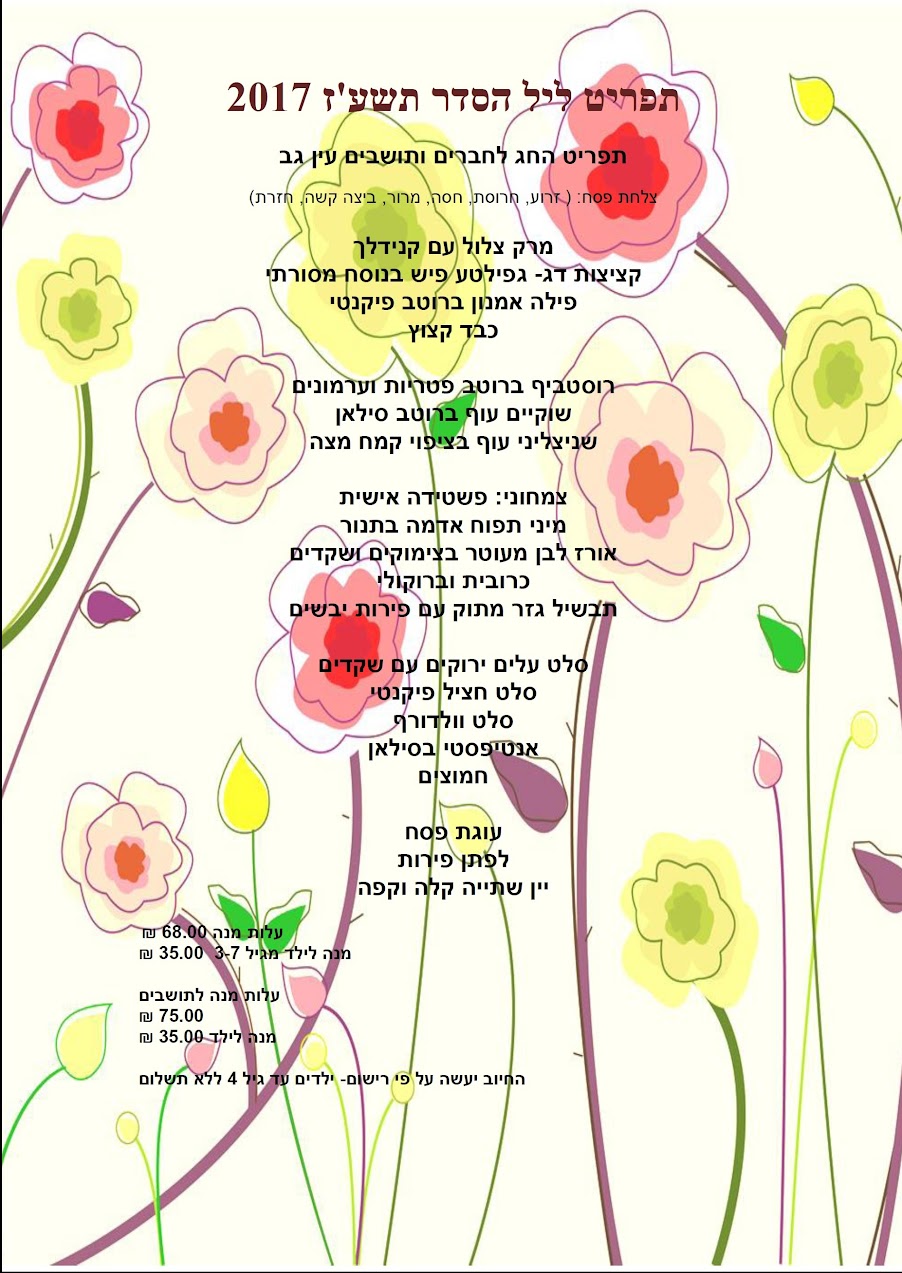 תפריט ליל הסדר תשע'ז 2017
תפריט החג לחברים ותושבים עין גב
צלחת פסח: ( זרוע, חרוסת, חסה, מרור, ביצה קשה, חזרת)
מרק צלול עם קנידלך
קציצות דג- גפילטע פיש בנוסח מסורתי
פילה אמנון ברוטב פיקנטי
כבד קצוץ
רוסטביף ברוטב פטריות וערמונים
שוקיים עוף ברוטב סילאן
שניצליני עוף בציפוי קמח מצה
צמחוני: פשטידה אישית
מיני תפוח אדמה בתנור
אורז לבן מעוטר בצימוקים ושקדים
כרובית וברוקולי
תבשיל גזר מתוק עם פירות יבשים
סלט עלים ירוקים עם שקדים
סלט חציל פיקנטי
סלט וולדורף
אנטיפסטי בסילאן
חמוצים
עוגת פסח
לפתן פירות
יין שתייה קלה וקפה
עלות מנה 68.00 ₪
מנה לילד מגיל 3-7 35.00 ₪
עלות מנה לתושבים
75.00 ₪
מנה לילד 35.00 ₪
החיוב יעשה על פי רישום- ילדים עד גיל 4 ללא תשלום